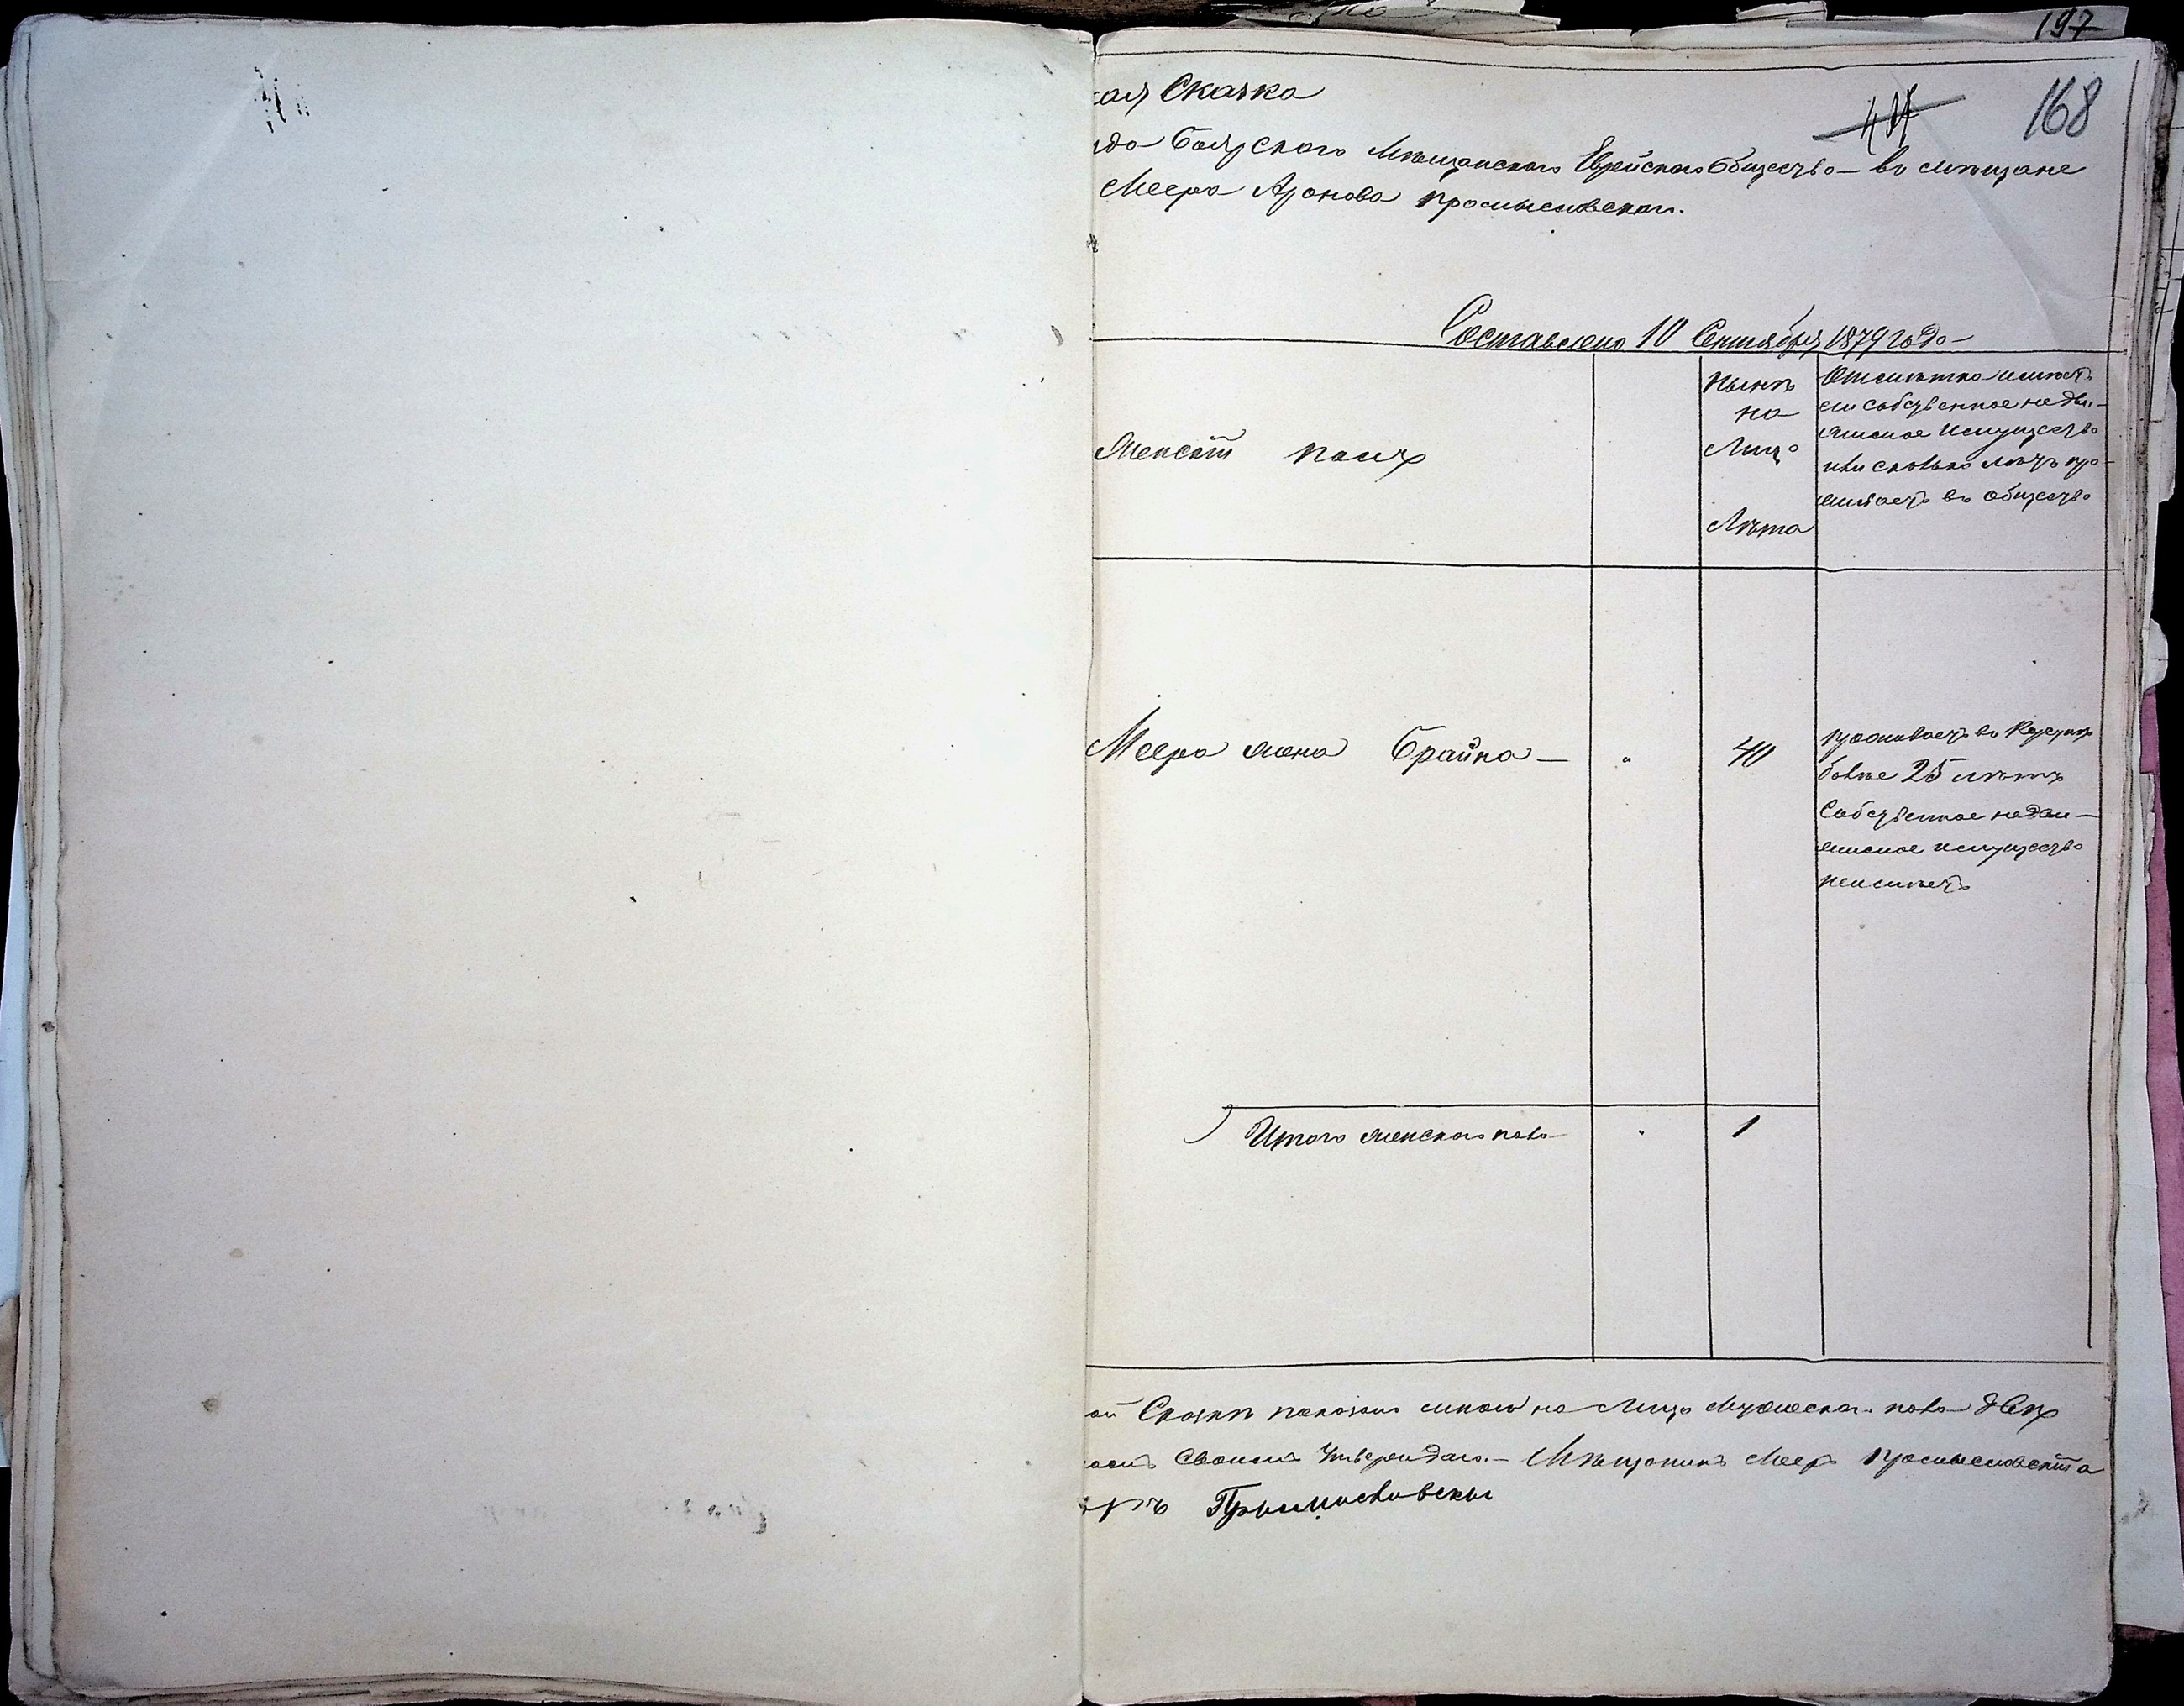 197
168
ая Сказка
да Боярского Мѣщанского Еврейского Общества въ мѣщане
Меера Аронова Промысловского.
Составлена 10 Сентября 1879 года
Женскій полъ
Нынѣ на Лицо Лѣта
Отмѣтка имѣетъ
ли собственное недви-
жимое имущество
или сколько лѣтъ про-
живаетъ въ обществѣ
Меера жена Брайна — " 40
проживаетъ въ
болѣе 25 лѣтъ
Собственное недви-
жимое имущество
неимѣетъ
Итого женского пола " 1
ой Сказкѣ показано мною на Лицо Мужеска пола двѣ
Своимъ Утверждаю. — Мѣщанинъ Меер Промысловскій а
ръ Промисловскы